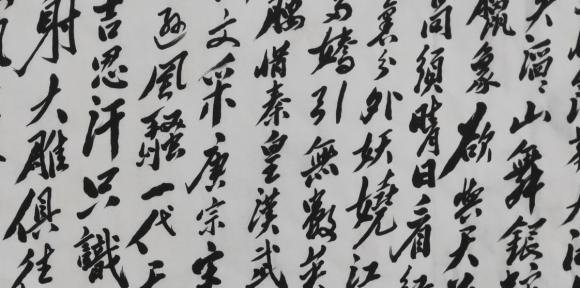 大河
滔〻山舞銀
蠟象欲與天
高須晴日看紅
裹分外妖嬈江
多嬌引無數英
腰惜秦皇漢武
文采唐宗宋
遜風騷一代天
吉思汗只識
射大雕俱往